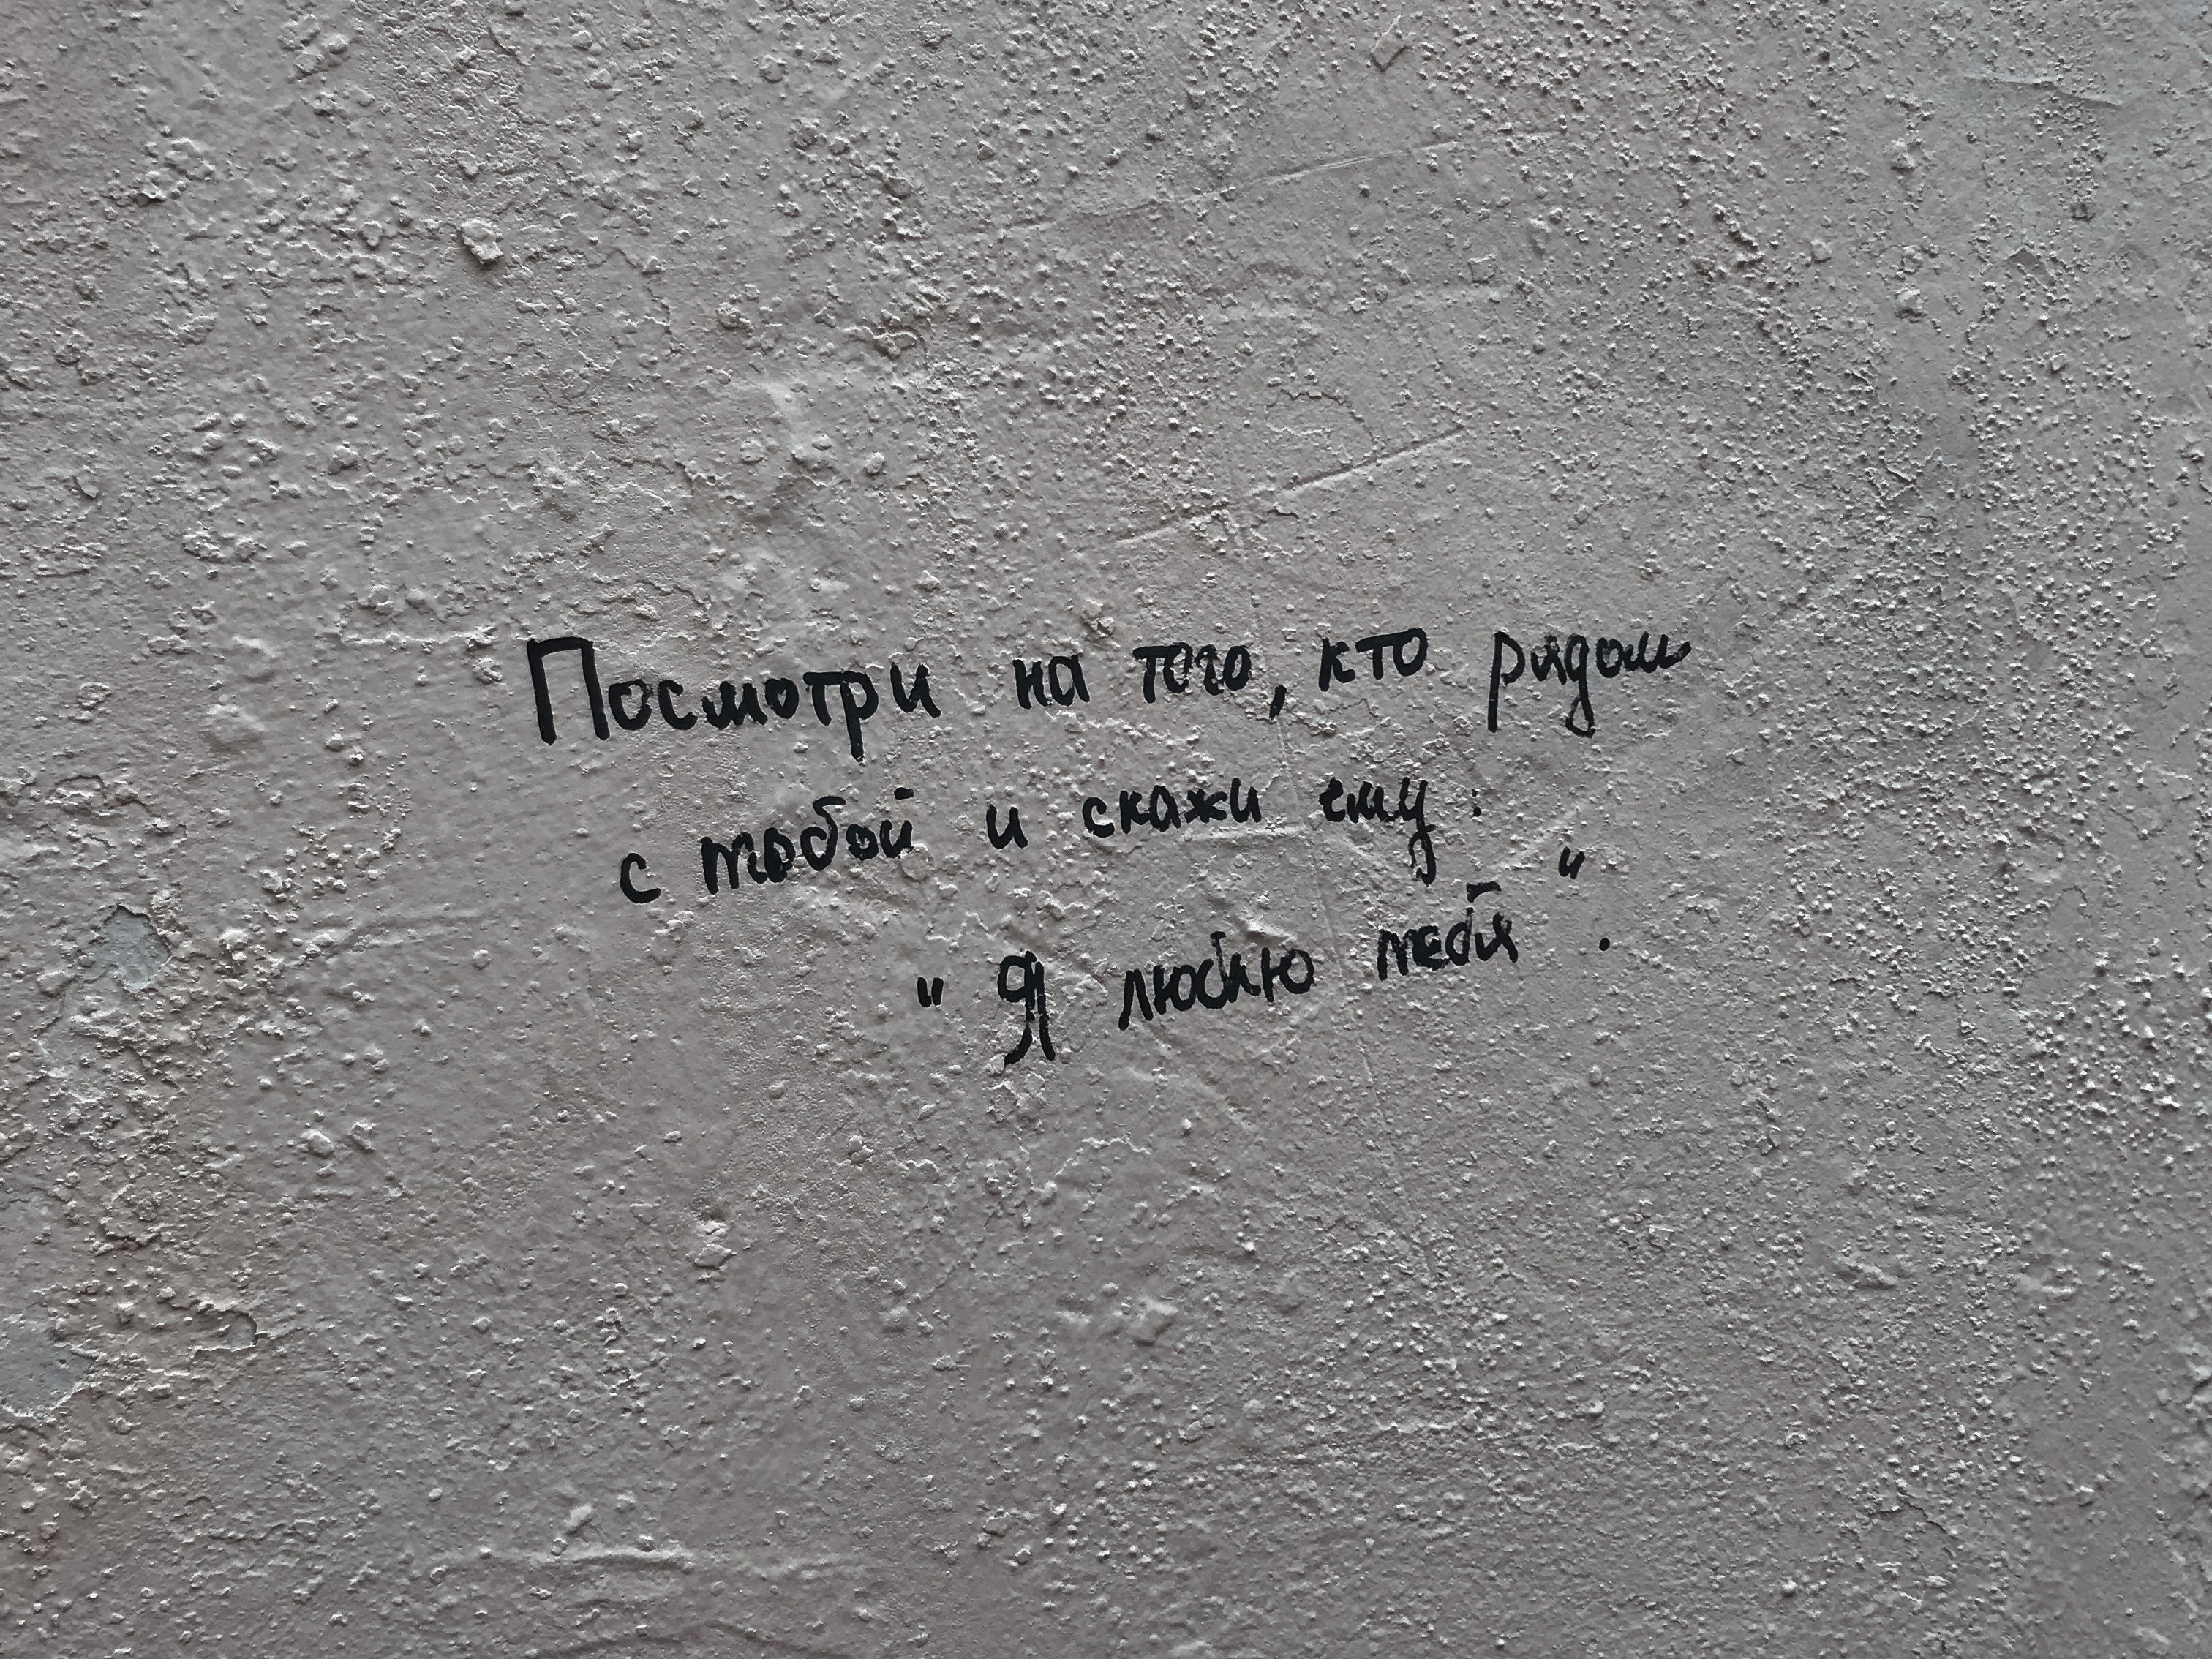 Посмотри на того, кто рядом
с тобой и скажи ему:
"Я люблю тебя".